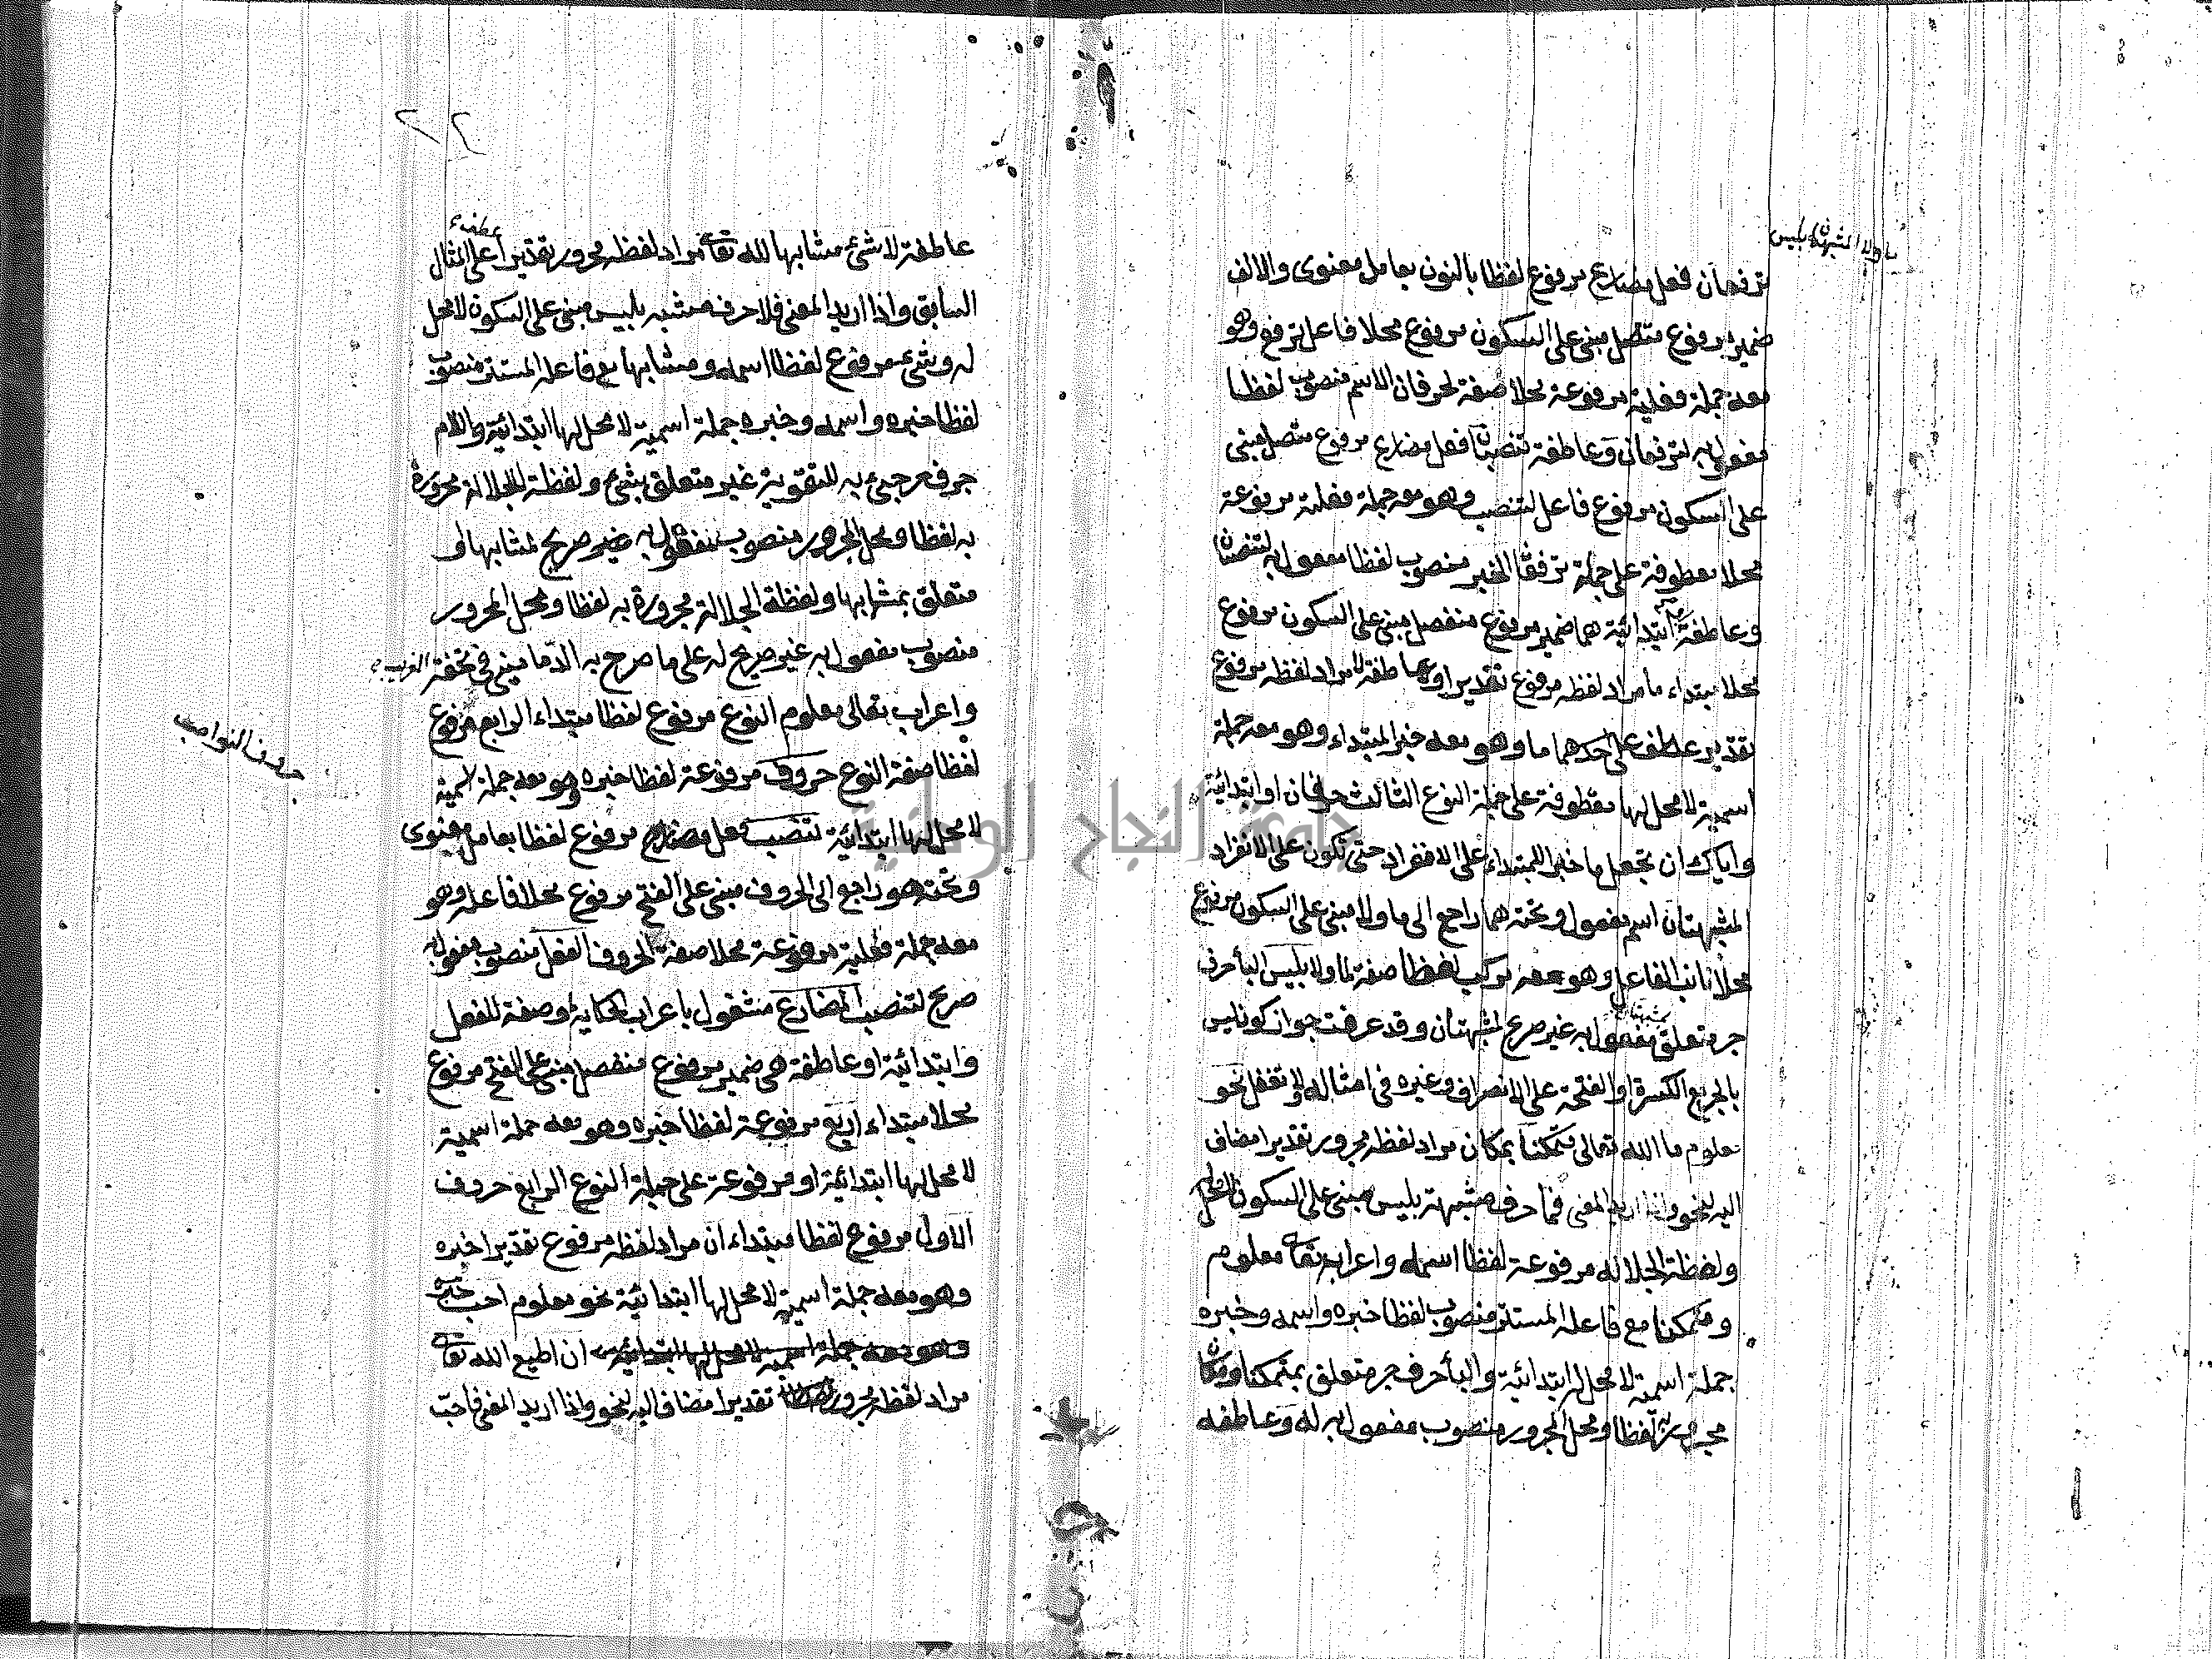 ما ولا المشبهتان بليس
ترفعان فعل مضارع مرفوع لفظا بالنون بعامل معنوى والالف
ضمير مرفوع متصل مبنى على السكون مرفوع محلا فاعل ترفع وهو
معه جملة فعلية مرفوعة محلا صفة لحرفان الاسم منصوب لفظا
مفعول به لترفعان وعاطفة تنصبان فعل مضارع مرفوع متصل مبنى
على السكون مرفوع فاعل لتنصب وهو معه جملة فعلية مرفوعة
محلا معطوفة على جملة ترفعا الخبر منصوب لفظا مفعول به لتنصبان
وعاطفة ابتدائية هما ضمير مرفوع منفصل مبنى على السكون مرفوع
محلا مبتداء ما مراد لفظه مرفوع تقديرا وعاطفة لا مراد لفظه مرفوع
تقدير عطف على احدهما ما وهو معه خبر المبتداء وهو معه جملة
اسمية لا محل لها معطوفة على جملة النوع الثالث حرفان او ابتدائية
واياك ان تجعل ما خبر المبتداء على الانفراد حتى تكون على الانفراد
المشبهتان اسم مفعول وتحته هما راجع الى ما ولا مبنى على السكون مرفوع
محلا نائب الفاعل وهو معه مركب لفظا صفة لما ولا بليس البأ حرف
جر متعلق مفعول به غير صريح لمشبهتان وقد عرفت جواز كون ليس
بالجر مع الكسرة او الفتحة على الانصراف وغيره فى امثاله ولا تغفل نحو
معلوم ما الله تعالى متمكنا بمكان مراد لفظه مجرور تقديرا مضاف
اليه لنحو واذا اريد المعنى فما حرف مشبهة بليس مبنى على السكون لا محل
ولفظة الجلاله مرفوعة لفظا اسمه واعراب تعا معلوم
ومتمكنا مع فاعله المستتر منصوب لفظا خبره واسمه وخبره
جملة اسمية لا محل له ابتدائية والبأ حرف جر متعلق بمتمكنا ومكان
مجرور به لفظا ومحل المجرور منصوب مفعول به له وعاطفه
٢٢
عاطفة لا شئ مشابها لله تعا مراد لفظه مجرور تقديرا على المثال
السابق واذا اريد المعنى فلا حرف مشبه بليس مبنى على السكون لا محل
له وشئ مرفوع لفظا اسمه ومشابها مع فاعله المستتر منصوب
لفظا خبره واسمه وخبره جملة اسمية لا محل لها ابتدائية واللام
حرف جر جئ به للتقوية غير متعلق بشئ ولفظة الجلالة مجرورة
به لفظا ومحل المجرور منصوب مفعول به غير صريح لمشابها او
متعلق بمشابها ولفظة الجلالة مجرورة به لفظا ومحل المجرور
منصوب مفعول به غير صريح له على ما صرح به الدمامينى فى تحفة الغريب
واعراب تعالى معلوم النوع مرفوع لفظا مبتداء الرابع مرفوع
لفظا صفة النوع حروف مرفوعة لفظا خبره وهو معه جملة اسمية
حروف النواصب
لا محل لها ابتدائية تنصب فعل مضارع مرفوع لفظا بعامل معنوى
وتحته هو راجع الى الحروف مبنى على الفتح مرفوع محلا فاعله وهو
معه جملة فعلية مرفوعة محلا صفة الحروف الفعل منصوب مفعول به
صريح لتنصب المضارع مشغول باعراب الحكاية وصفة للفعل
وابتدائية او عاطفة هى ضمير مرفوع منفصل مبنى على الفتح مرفوع
محلا مبتداء اربع مرفوعة لفظا خبره وهو معه جملة اسمية
لا محل لها ابتدائية او مرفوعة على جملة النوع الرابع حروف
الاول مرفوع لفظا مبتداء ان مراد لفظه مرفوع تقديرا خبره
وهو معه جملة اسمية لا محل لها ابتدائية نحو معلوم احب خبره
وهو معه جملة اسمية لا محل لها ابتدائية ان اطيع الله تعا
مراد لفظه مجرور تقديرا مضاف اليه لنحو واذا اريد المعنى فاحب
جامعة النجاح الوطنية